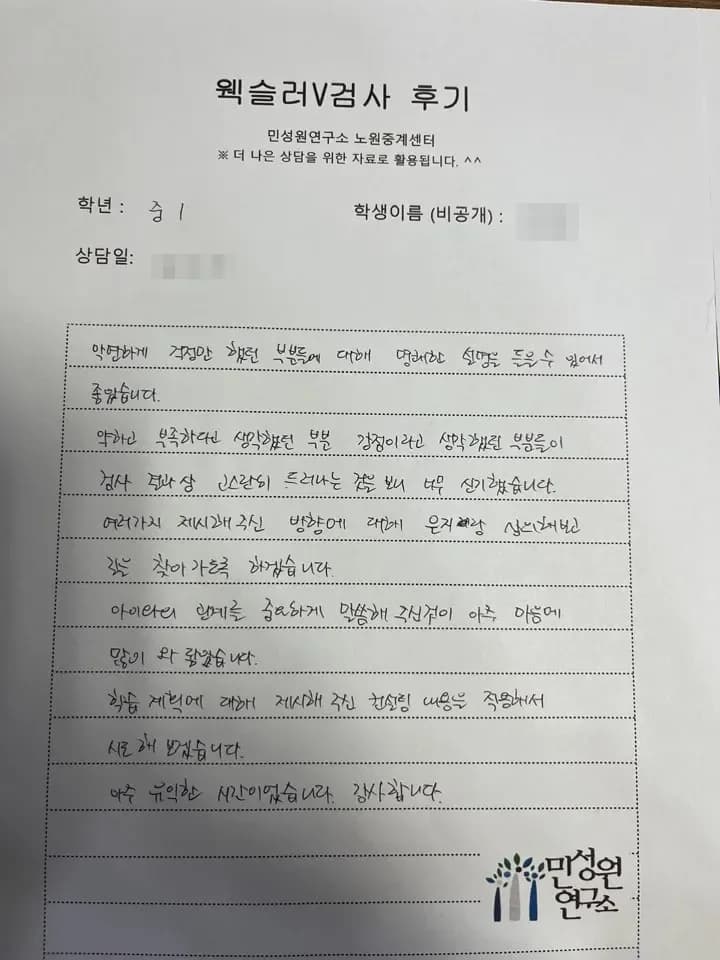 웩슬러V검사 후기
민성원연구소 노원중계센터
※ 더 나은 상담을 위한 자료로 활용됩니다. ^^
학년 : 중 1
학생이름 (비공개) :
상담일:
막연하게 걱정만 했던 부분들에 대해 명쾌한 설명을 들을 수 있어서
좋았습니다.
약하고 부족하다고 생각했던 부분 강점이라고 생각했던 부분들이
검사 결과상 고스란히 드러나는 것을 보니 너무 신기했습니다.
여러가지 제시해 주신 방향에 대해 상의해보고
길을 찾아 가도록 하겠습니다.
아이와의 관계를 중요하게 말씀해 주신것이 아주 마음에
많이 와 닿았습니다.
학습 계획에 대해 제시해 주신 컨설팅 내용을 적용해서
시도해 보겠습니다.
아주 유익한 시간이었습니다. 감사합니다.
민성원
연구소